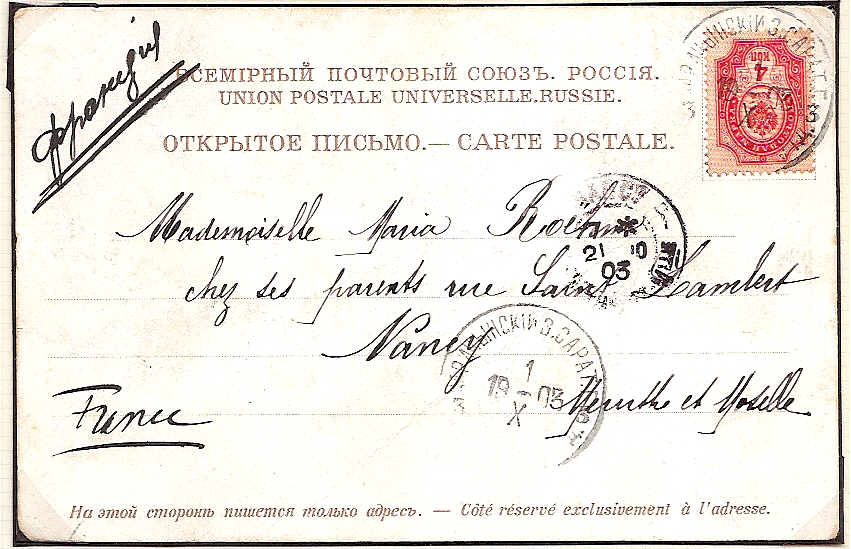 Франція
ВСЕМІРНЫЙ ПОЧТОВЫЙ СОЮЗЪ. РОССІЯ.
UNION POSTALE UNIVERSELLE.RUSSIE.
ОТКРЫТОЕ ПИСЬМО.— CARTE POSTALE.
4
КОП
ПОЧТОВАЯ МАРКА
З.САРАТ
Mademoiselle Maria
21 10
03
chez ses parents rue Saint Lambert
Nancy
З.САРАТ
1
19 03
X
Meurthe et Moselle
France
На этой сторонѣ пишется только адресъ. — Côté réservé exclusivement à l'adresse.